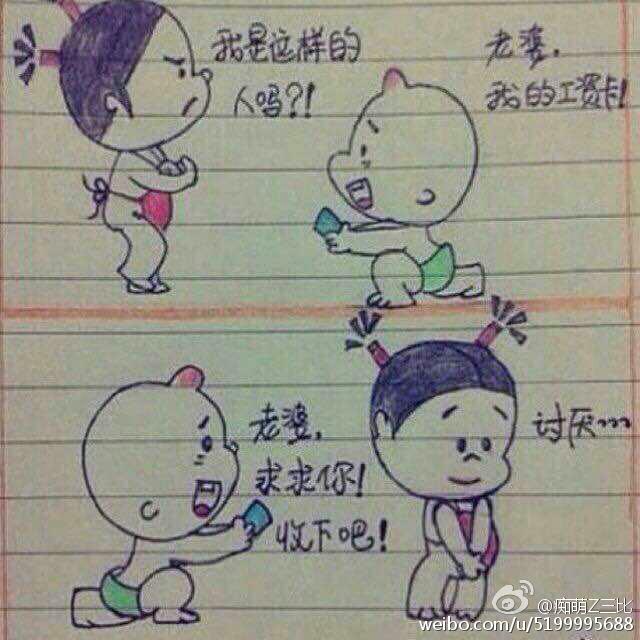 我是这样的
人吗?!
老婆，
我的工资卡!
老婆，
求求你!
收下吧!
讨厌~~~
@痴萌Z三比
weibo.com/u/5199995688